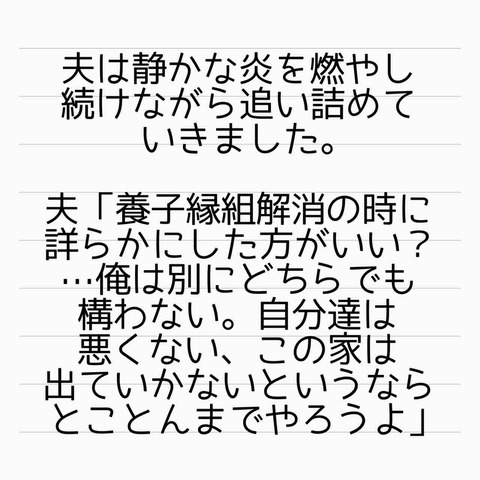 夫は静かな炎を燃やし
続けながら追い詰めて
いきました。
夫「養子縁組解消の時に
詳らかにした方がいい？
…俺は別にどちらでも
構わない。自分達は
悪くない、この家は
出ていかないというなら
とことんまでやろうよ」